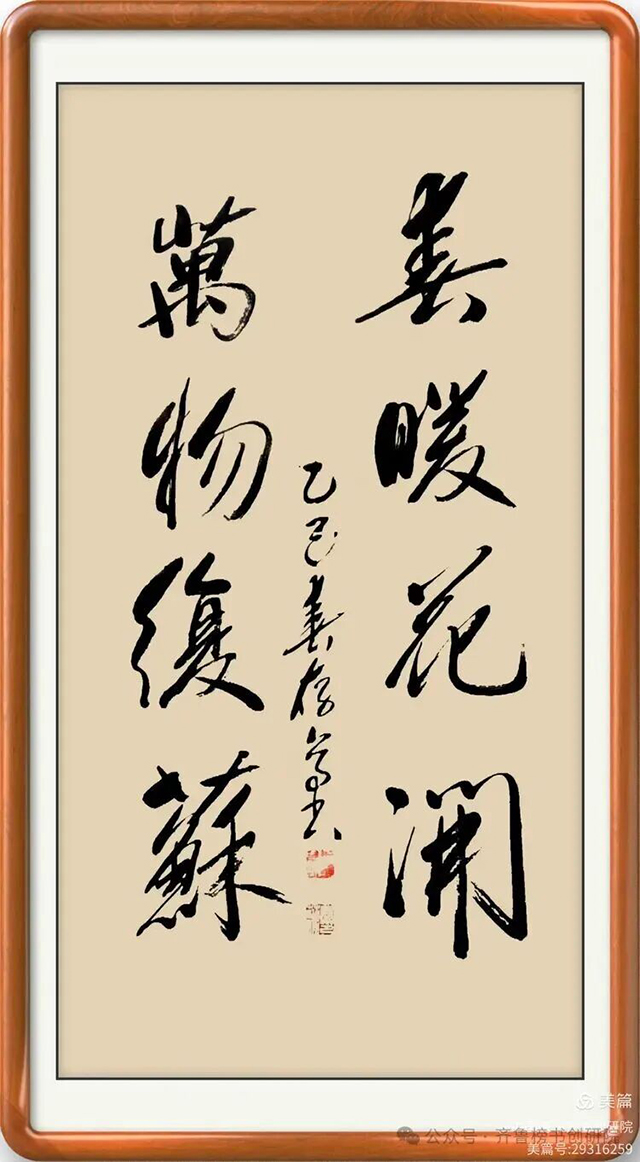 春暖花開
萬物復蘇
乙巳春存葛书
美篇
公众号·齐鲁榜书创研院
研院
美篇号:29316259